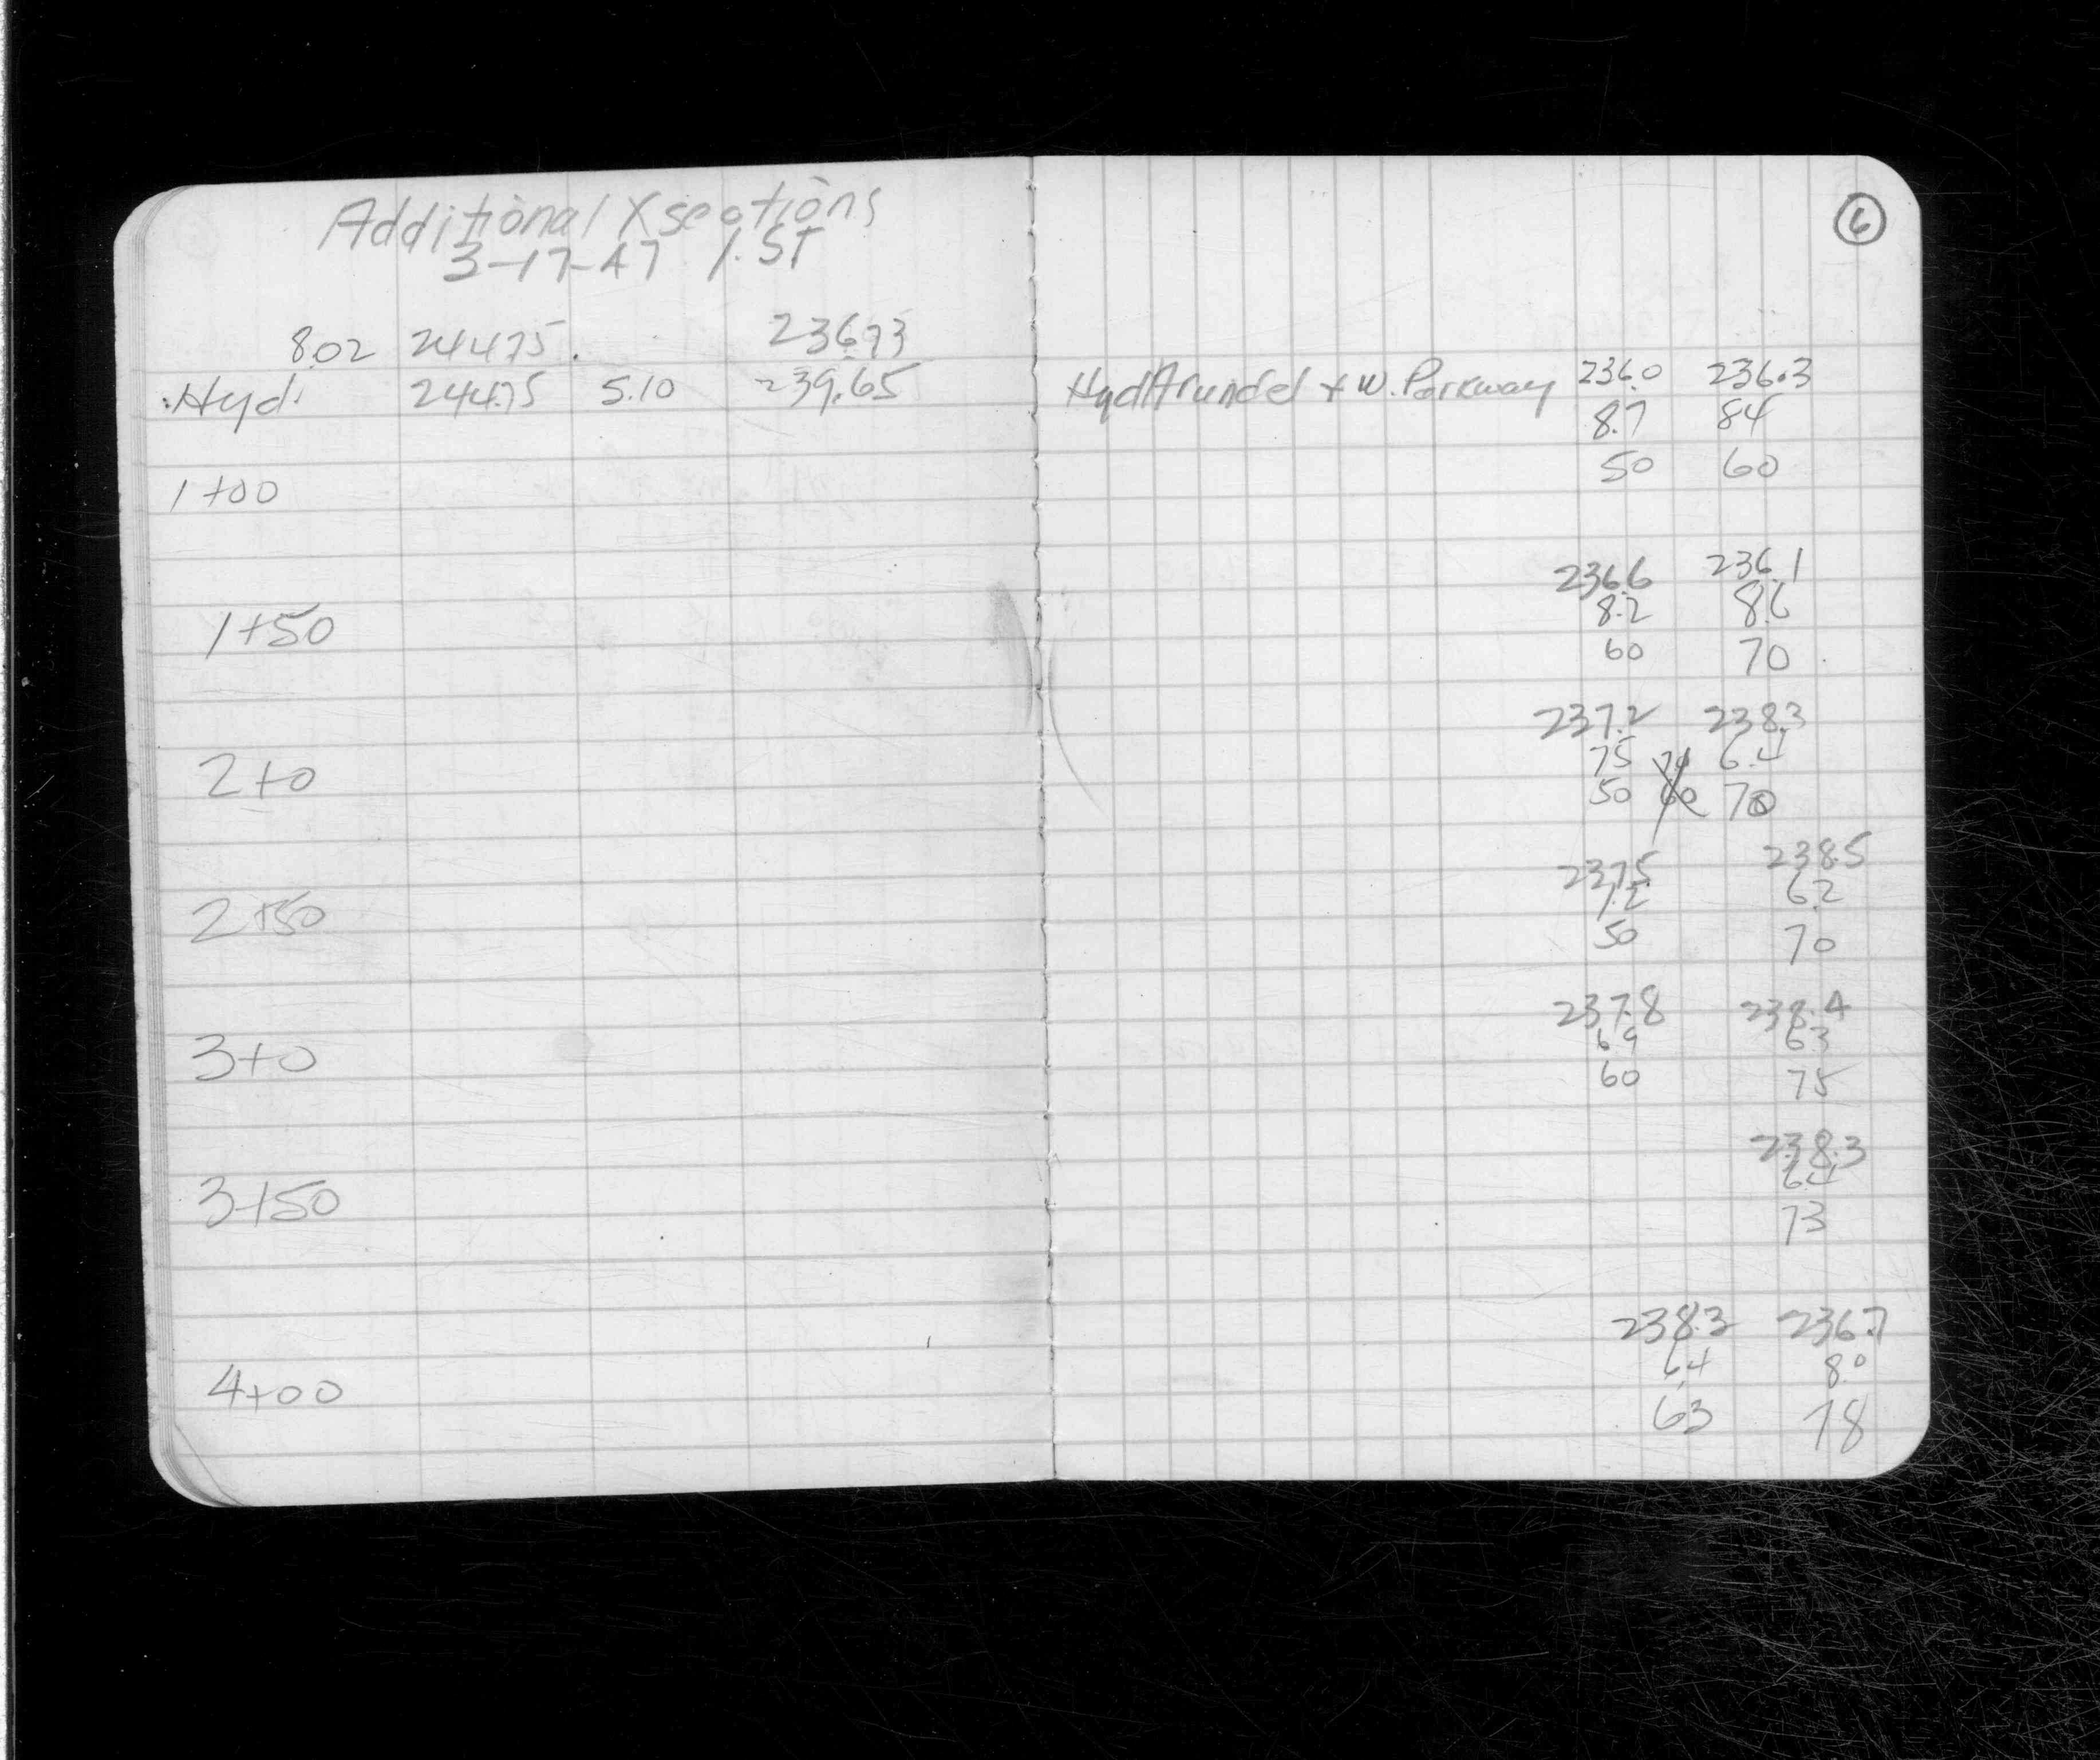 Additional Xsections
3-17-47 1.ST
6
8.02 244.75 236.73
Hyd. 244.75 5.10 239.65 Hyd Arundel + W. Parkway 236.0 236.3
8.7 8.4
50 60
1+00
236.6 236.1
8.2 8.6
1+50 60 70
237.2 238.3
7.5 6.4
2+0 50 60 70
237.5 238.5
7.2 6.2
2+50 50 70
237.8 238.4
6.9 6.3
3+0 60 75
238.3
6.4
3+50 73
238.3 236.7
6.4 8.0
4+00 63 78